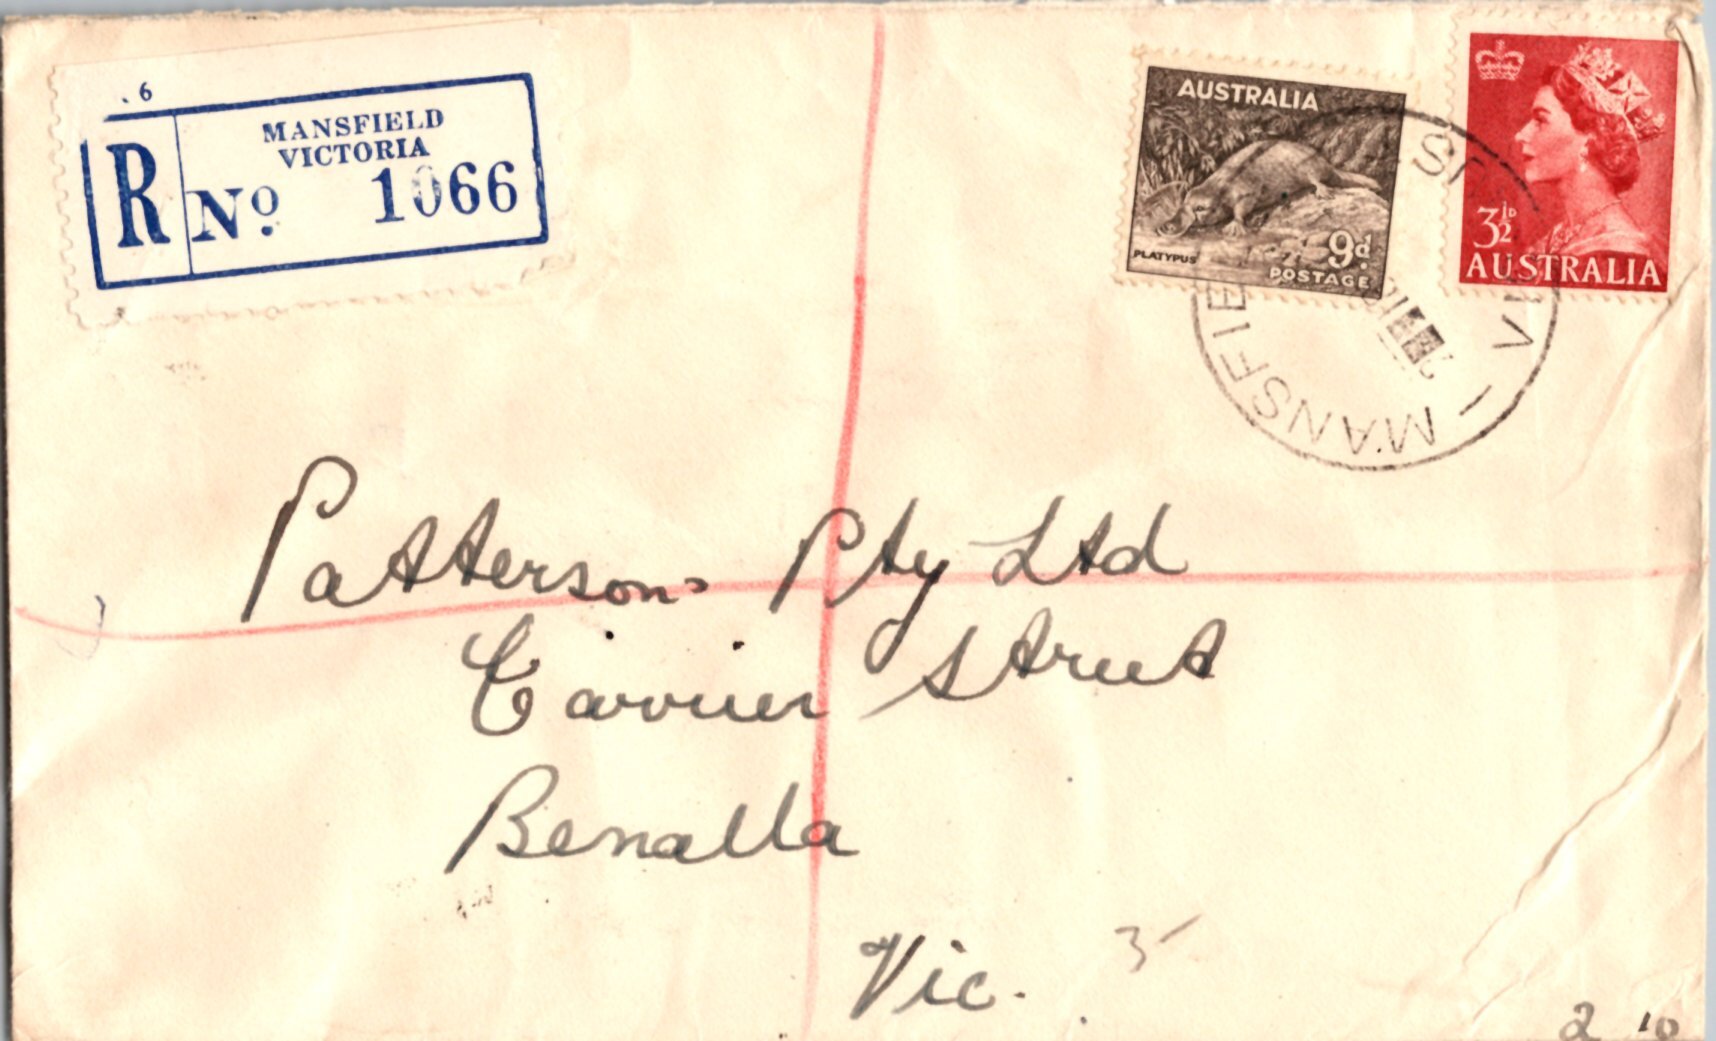 6
R
MANSFIELD
VICTORIA
No. 1066
AUSTRALIA
PLATYPUS
9d.
POSTAGE
3½D
AUSTRALIA
MANSFIE
Pattersons Pty Ltd
Carrier Street
Benalla
Vic.
2 10